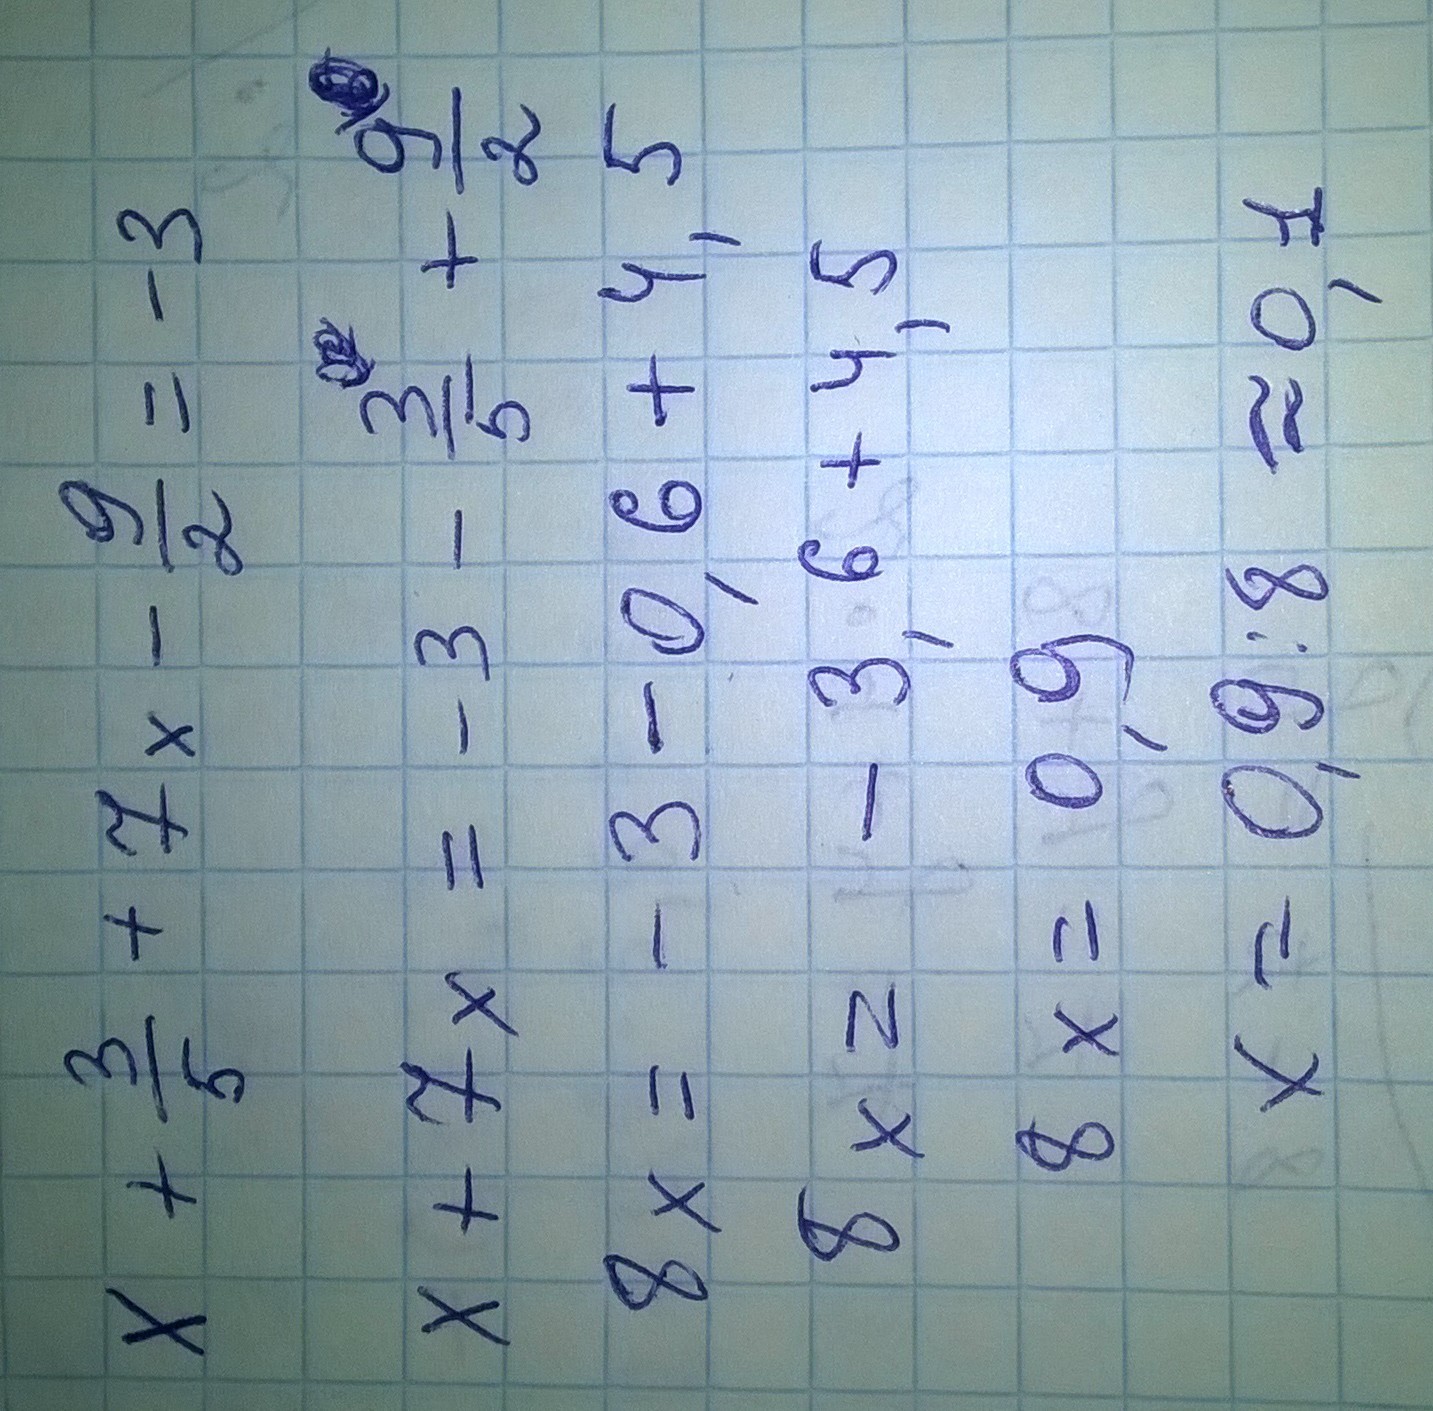 x + 3/5 + 7x - 9/2 = -3
x + 7x = -3 - 3/5 + 9/2
8x = -3 - 0,6 + 4,5
8x = -3,6 + 4,5
8x = 0,9
x = 0,9:8 ≈ 0,1